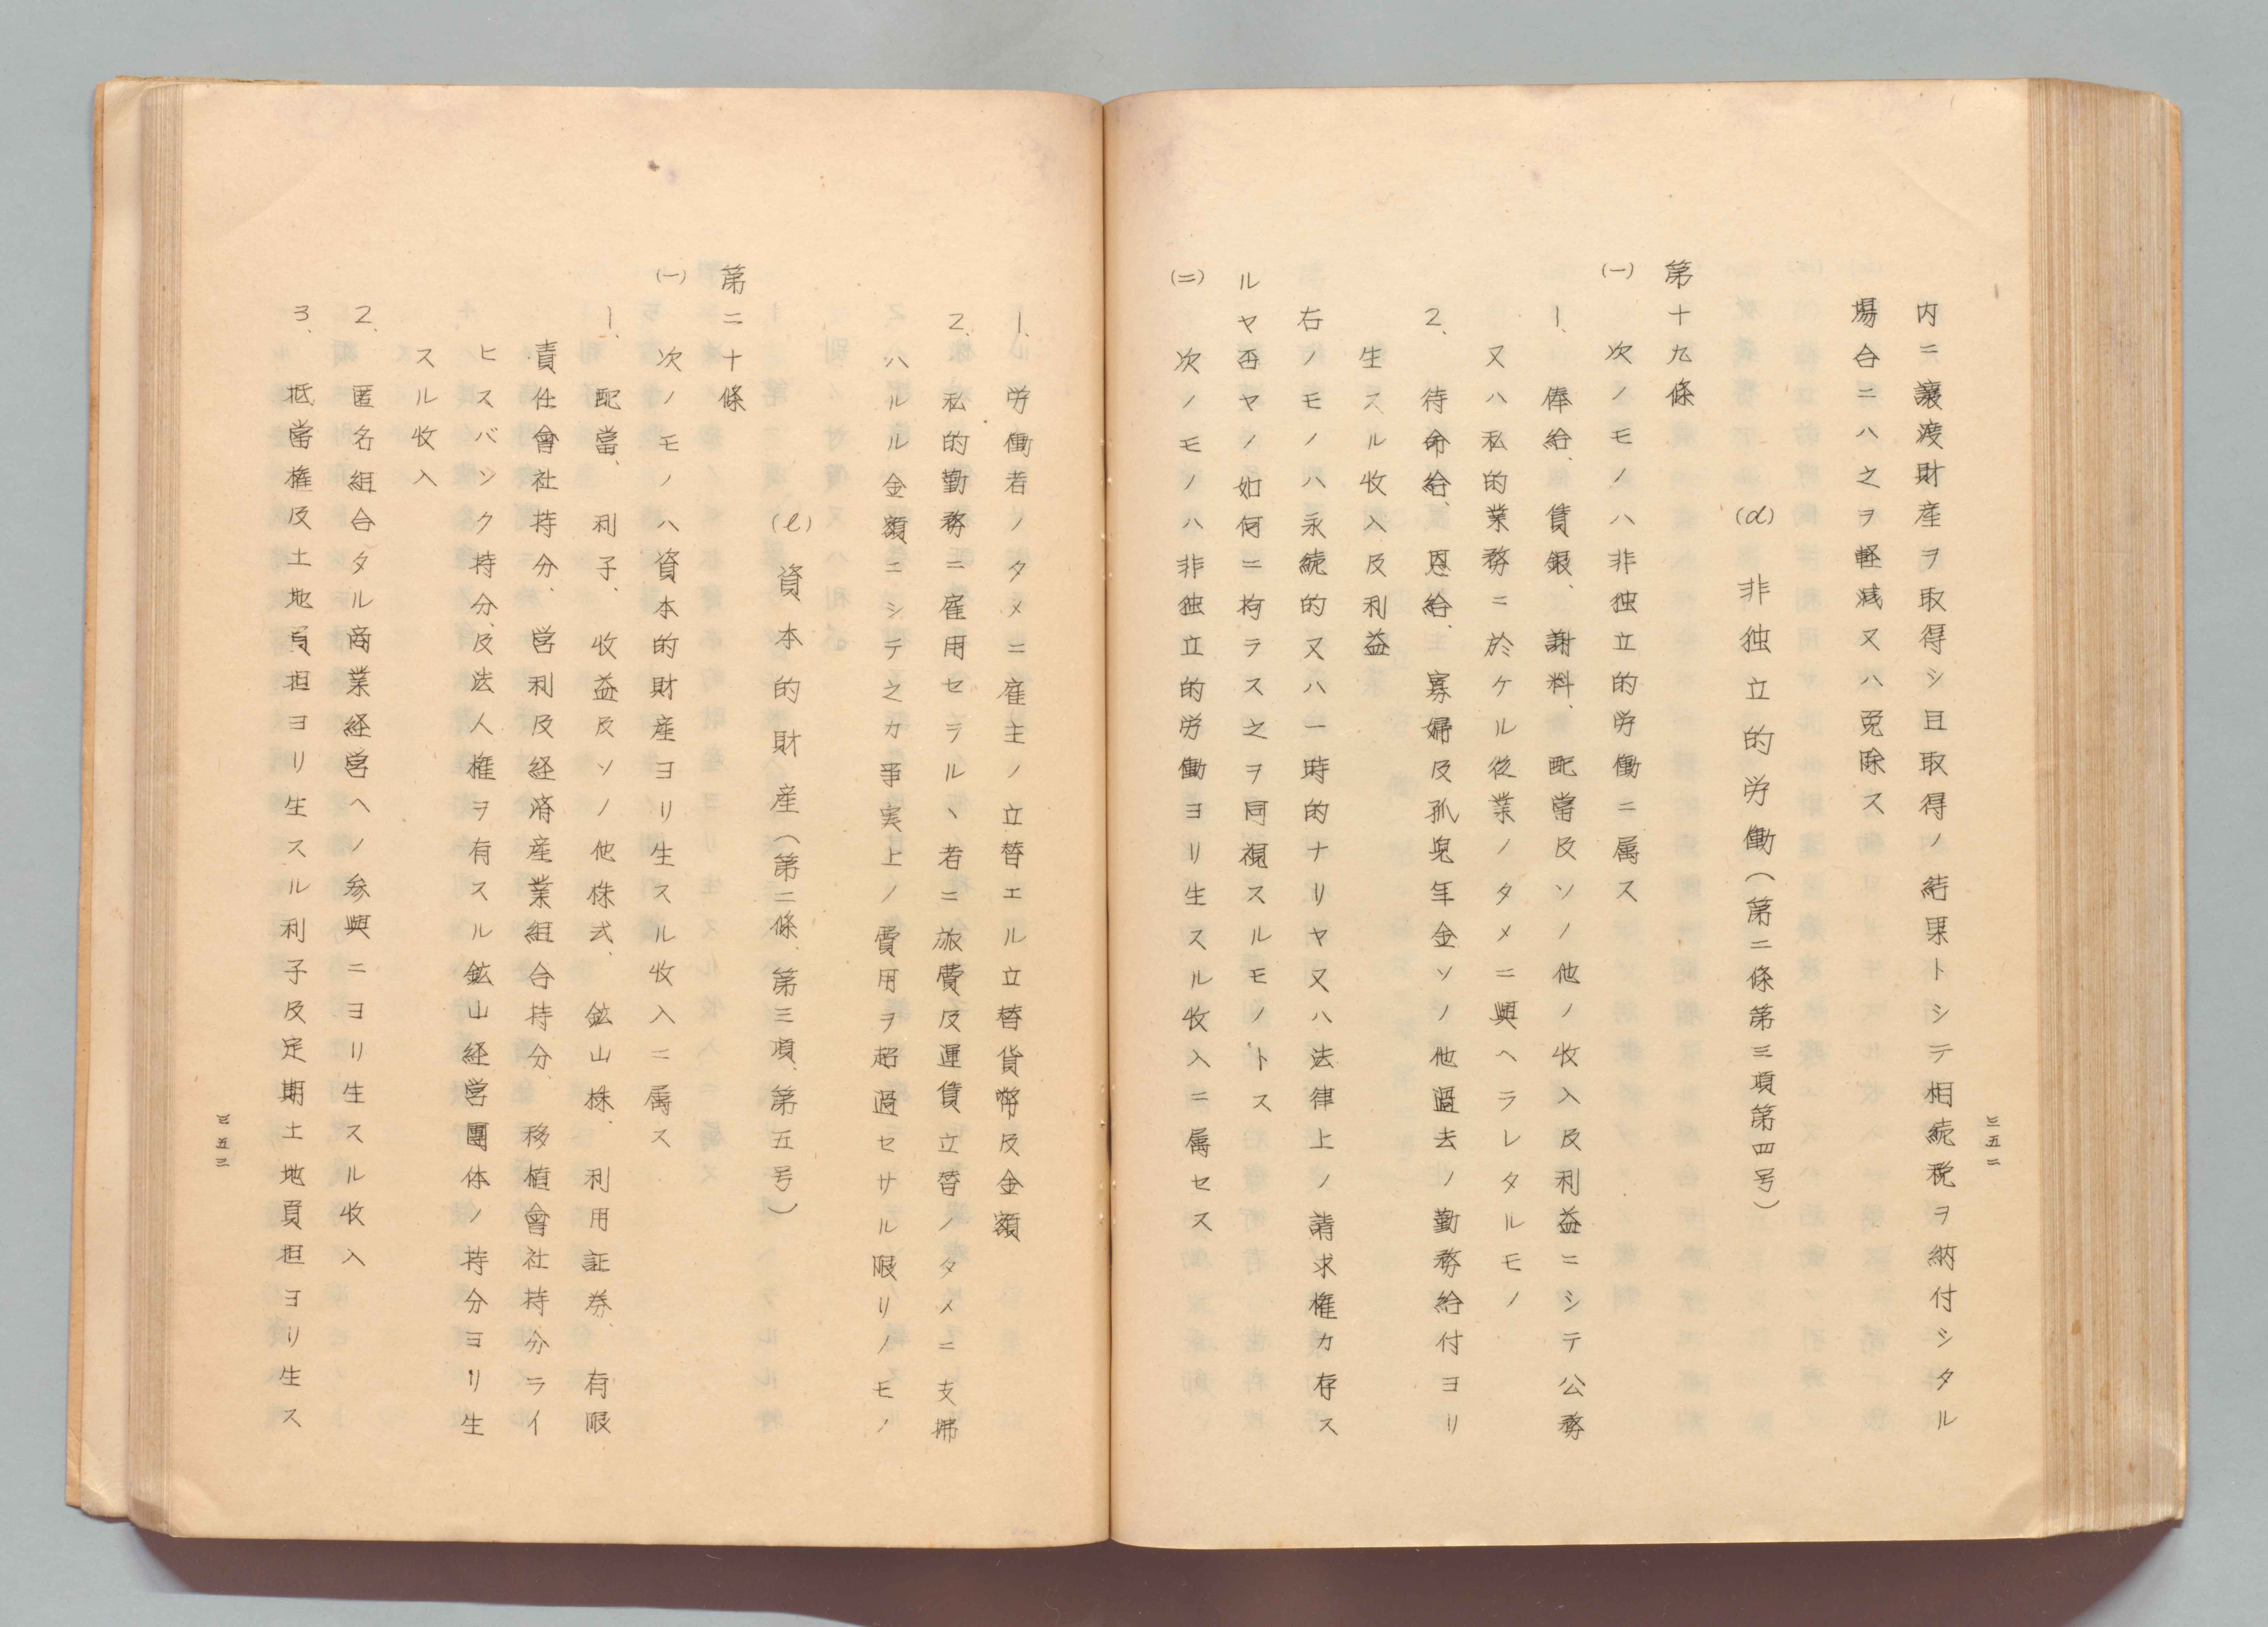 内ニ譲渡財産ヲ取得シ且取得ノ結果トシテ相続税ヲ納付シタル
場合ニハ之ヲ軽減又ハ免除ス
(d) 非独立的労働(第二條第三項第四号)
第十九條
(一) 次ノモノハ非独立的労働ニ属ス
1、俸給、賃銀、謝料、配當及ソノ他ノ收入及利益ニシテ公務
又ハ私的業務ニ於ケル従業ノタメニ與ヘラレタルモノ
2、待命給、恩給、寡婦及孤児年金ソノ他過去ノ勤務給付ヨリ
生スル收入及利益
右ノモノハ永続的又ハ一時的ナリヤ又ハ法律上ノ請求権カ存ス
ルヤ否ヤノ如何ニ拘ラス之ヲ同視スルモノトス
(二) 次ノモノハ非独立的労働ヨリ生スル收入ニ属セス
三五二
1、労働者ノタメニ雇主ノ立替エル立替貨幣及金額
2、私的勤務ニ雇用セラルヽ者ニ旅費及運賃立替ノタメニ支拂
ハルル金額ニシテ之カ事実上ノ費用ヲ超過セサル限リノモノ
(e) 資本的財産(第二條、第三項、第五号)
第二十條
(一) 次ノモノハ資本的財産ヨリ生スル收入ニ属ス
1、配當、利子、收益及ソノ他株式、鉱山株、利用証券、有限
責任會社持分、営利及経済産業組合持分、移植會社持分ライ
ヒスバンク持分、及法人権ヲ有スル鉱山経営團体ノ持分ヨリ生
スル收入
2、匿名組合タル商業経営ヘノ参與ニヨリ生スル收入
3、抵當権及土地負担ヨリ生スル利子及定期土地負担ヨリ生ス
三五三